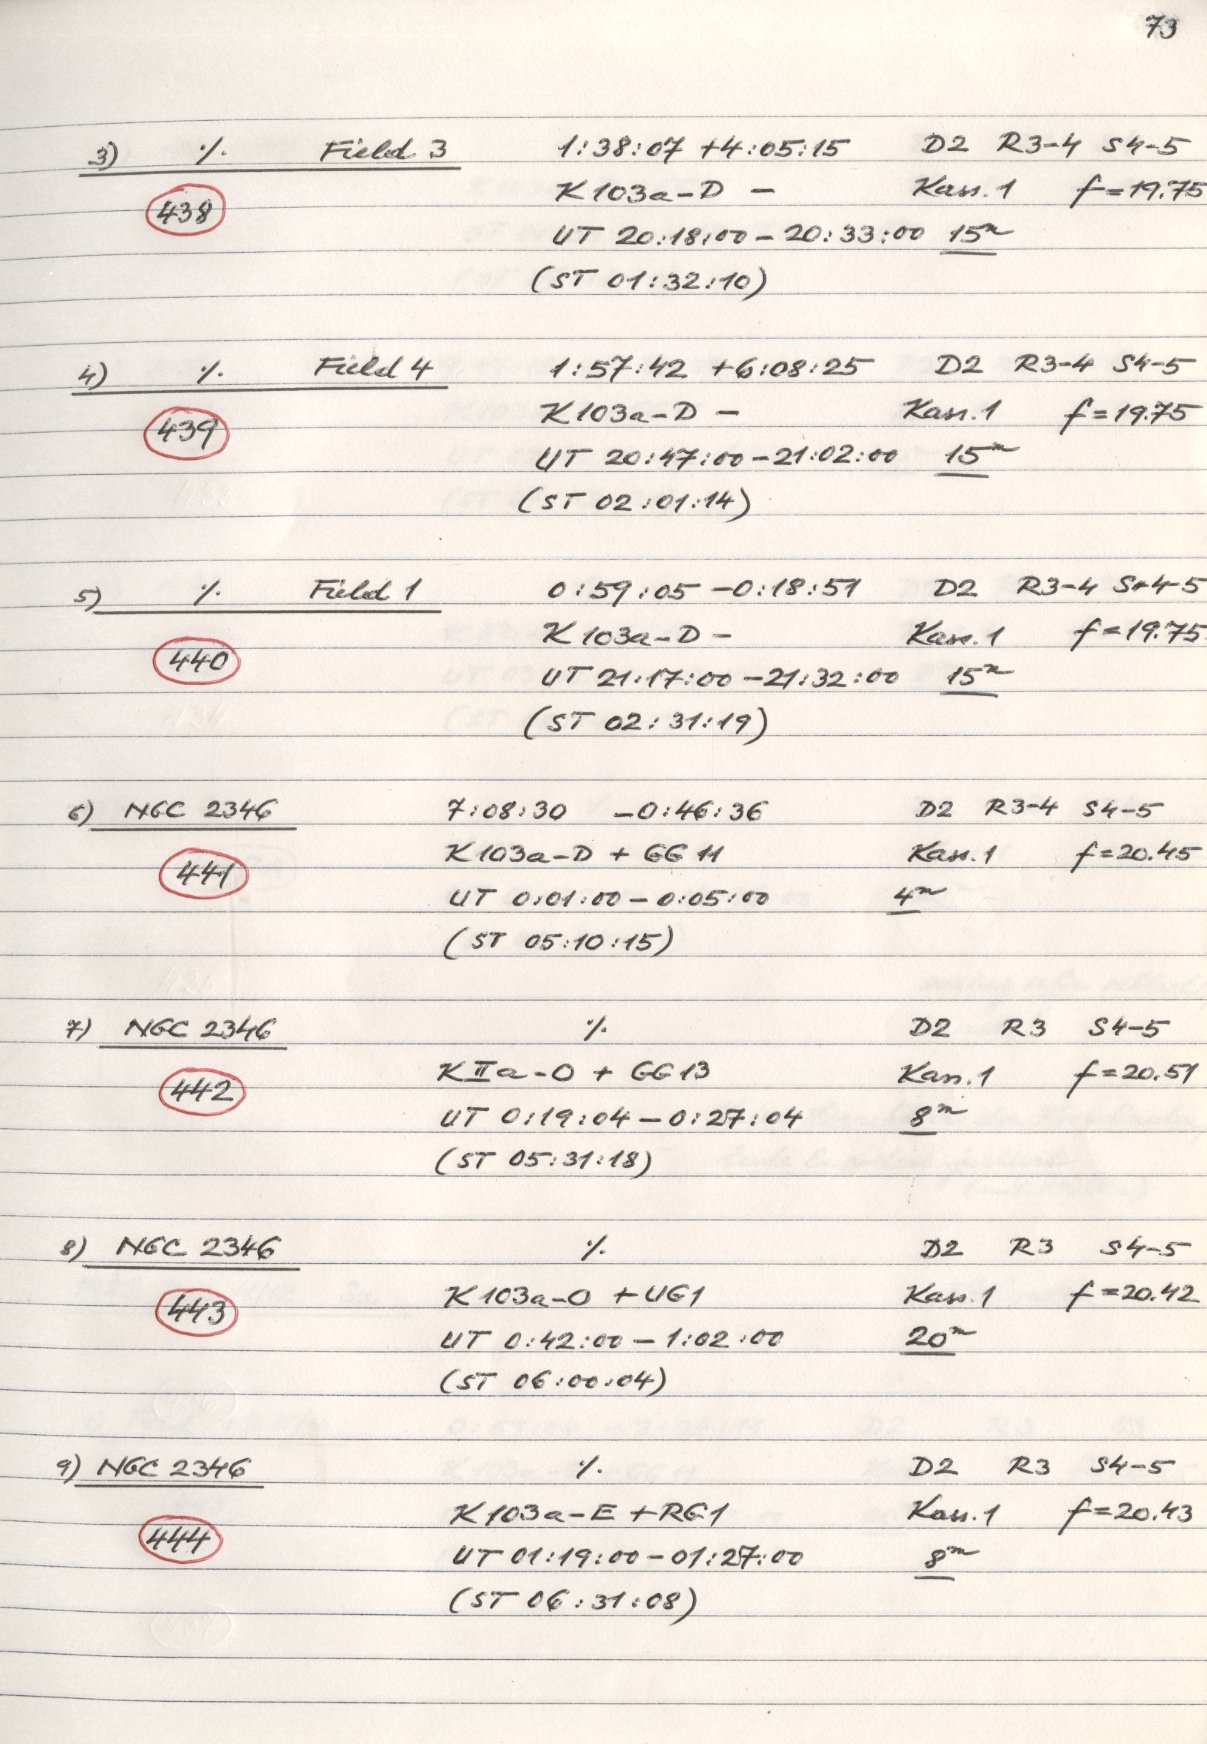 73
3) ·/. Field 3 1:38:07 +4:05:15 D2 R3-4 S4-5
438 K103a-D - Kass.1 f=19.75
UT 20:18:00-20:33:00 15m
(ST 01:32:10)
4) ·/. Field 4 1:57:42 +6:08:25 D2 R3-4 S4-5
439 K103a-D - Kass.1 f=19.75
UT 20:47:00-21:02:00 15m
(ST 02:01:14)
5) ·/. Field 1 0:59:05 -0:18:51 D2 R3-4 S4-5
440 K103a-D - Kass.1 f=19.75
UT 21:17:00-21:32:00 15m
(ST 02:31:19)
6) NGC 2346 7:08:30 -0:46:36 D2 R3-4 S4-5
441 K103a-D + GG11 Kass.1 f=20.45
UT 0:01:00-0:05:00 4m
(ST 05:10:15)
7) NGC 2346 ·/. D2 R3 S4-5
442 KIIa-O + GG13 Kass.1 f=20.51
UT 0:19:04-0:27:04 8m
(ST 05:31:18)
8) NGC 2346 ·/. D2 R3 S4-5
443 K103a-O +UG1 Kass.1 f=20.42
UT 0:42:00-1:02:00 20m
(ST 06:00:04)
9) NGC 2346 ·/. D2 R3 S4-5
444 K103a-E +RG1 Kass.1 f=20.43
UT 01:19:00-01:27:00 8m
(ST 06:31:08)